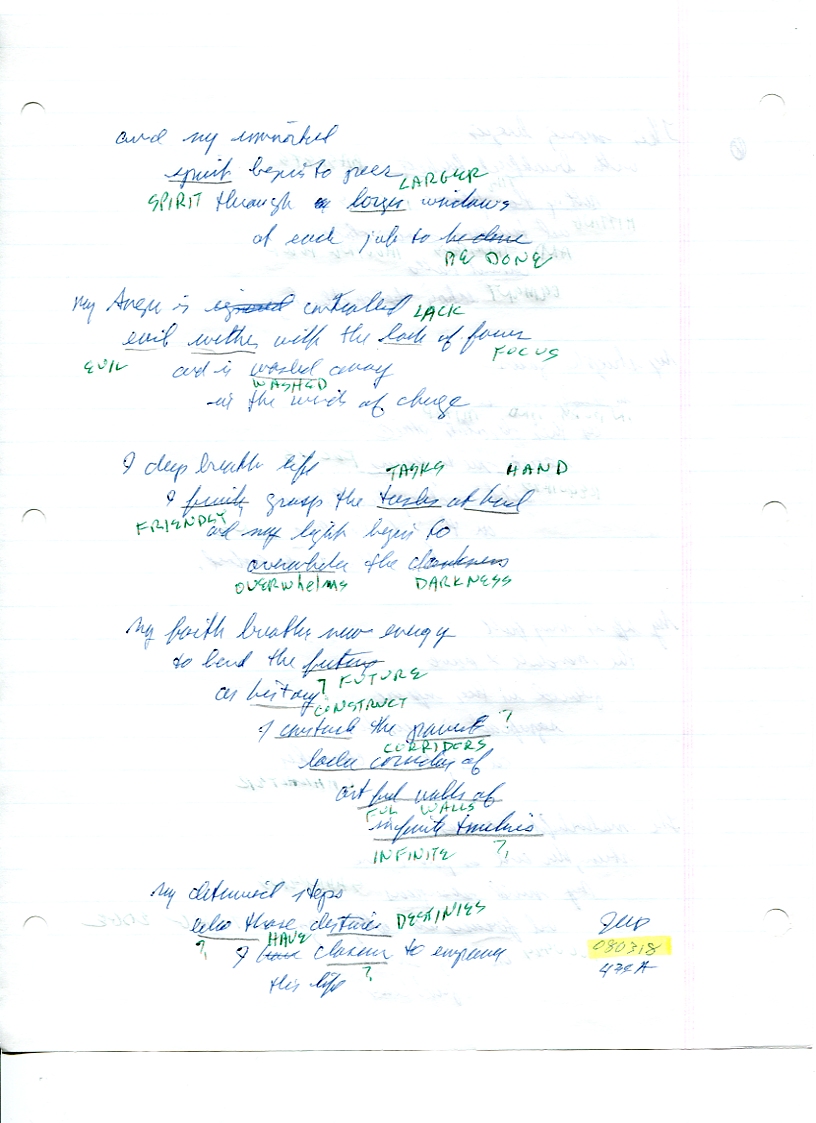 and my immortal
spirit begins to peer LARGER
SPIRIT through a larger windows
of each job to be done
BE DONE
My Anger is ignored controlled LACK
evil withers with the lack of focus
EVIL FOCUS
and is washed away
WASHED
in the winds of change
I deep breath life TASKS HAND
I grasp the tasks at hand
FRIENDLY
and my light begins to
overwhelm the darkness
OVERWhelMS DARKNESS
My faith breathes new energy
to bend the future
? FUTURE
as history
CONSTRUCT
I construct the ?
CORRIDERS
corridors of
artful walls of
FUL WALLS
infinite
INFINITE ?
My determined steps
echo those destinies DESTINIES
? HAVE
I have chosen to
?
this life
080318
439A